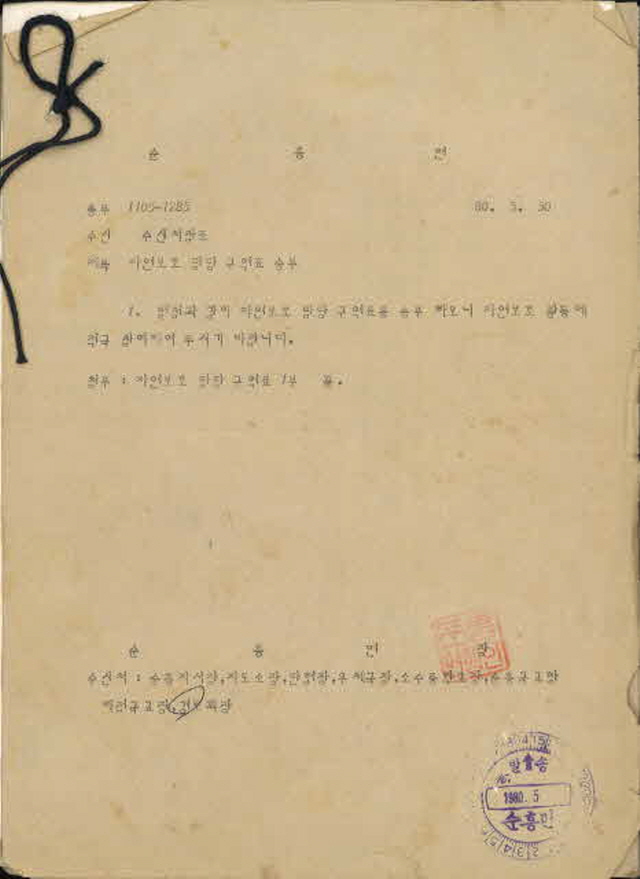 순 흥 면
총무 1105-1285 80. 5. 30
수신 수신처참조
제목 자연보호 담당 구역표 송부
1. 별첨과 같이 자연보호 담당 구역표를 송부 하오니 자연보호 활동에
적극 참여하여 주시기 바랍니다.
첨부 : 자연보호 담당 구역표 1부 끝.
순 흥 면 장
수신처 : 순흥지서장,지도소장,단협장,우체국장,소수중학교장,순흥국교장
국교장,
발송
1980. 5
순흥면